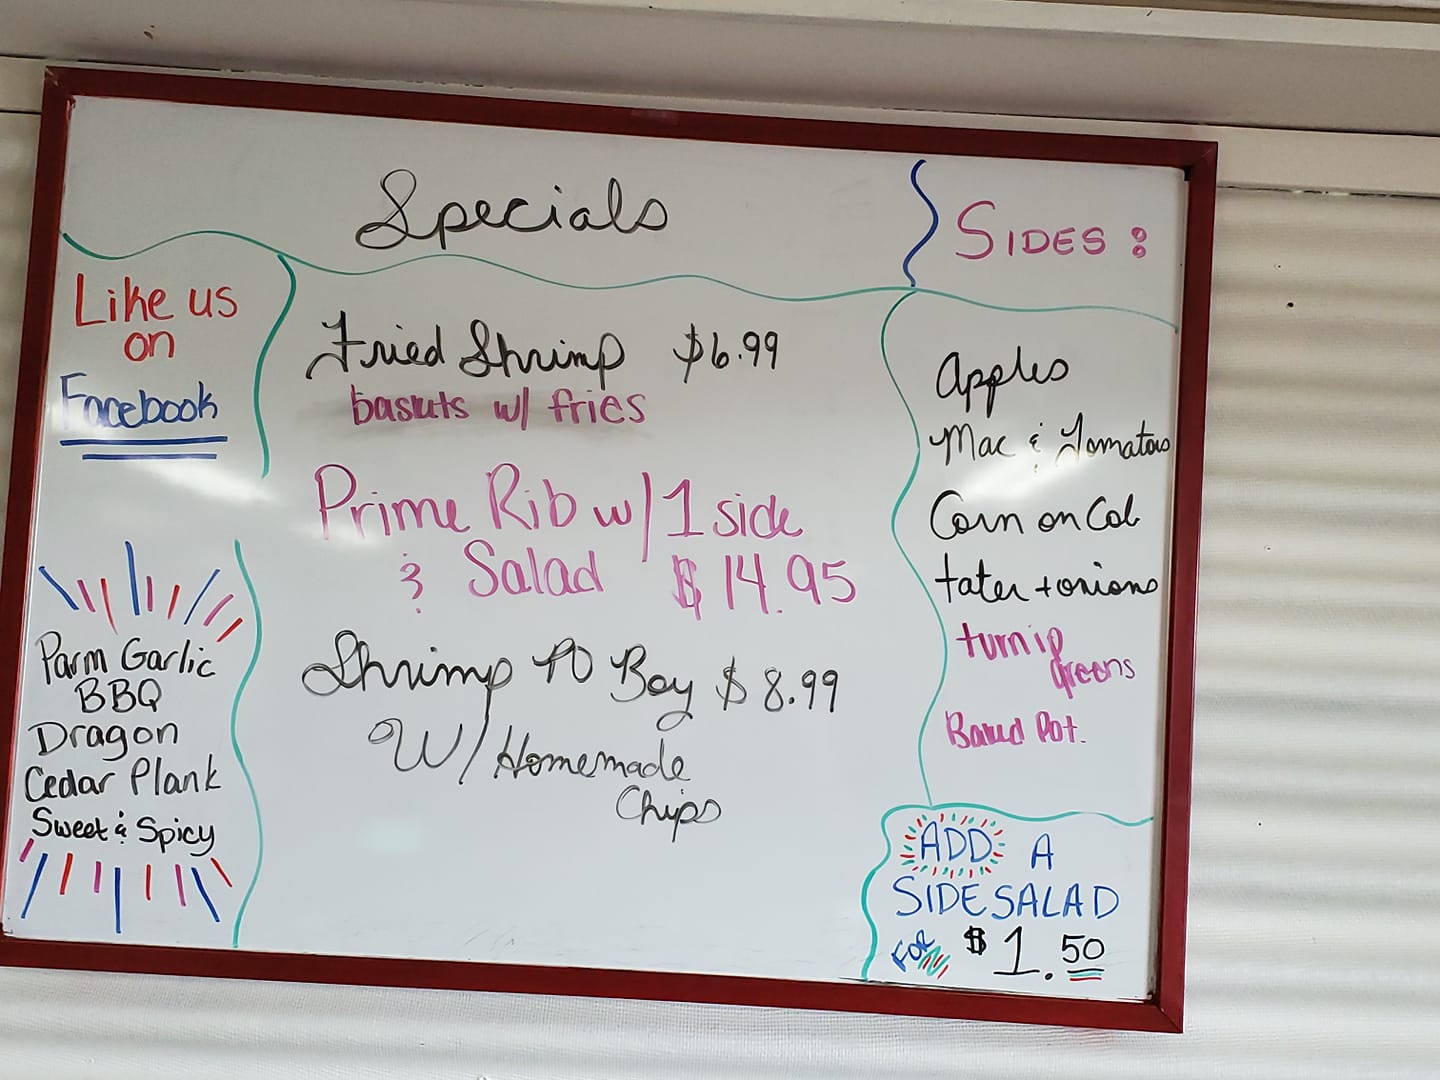 Specials
Like us
on
Facebook
Parm Garlic
BBQ
Dragon
Cedar Plank
Sweet & Spicy
Fried Shrimp $6.99
baskets w/ fries
Prime Rib w/ 1 side
& Salad $14.95
Shrimp PO Boy $8.99
W/ Homemade
Chips
SIDES:
Apples
Mac & Tomatoes
Corn on Cob
tater + onions
turnip
greens
Baked Pot.
ADD A
SIDE SALAD
FOR $1.50